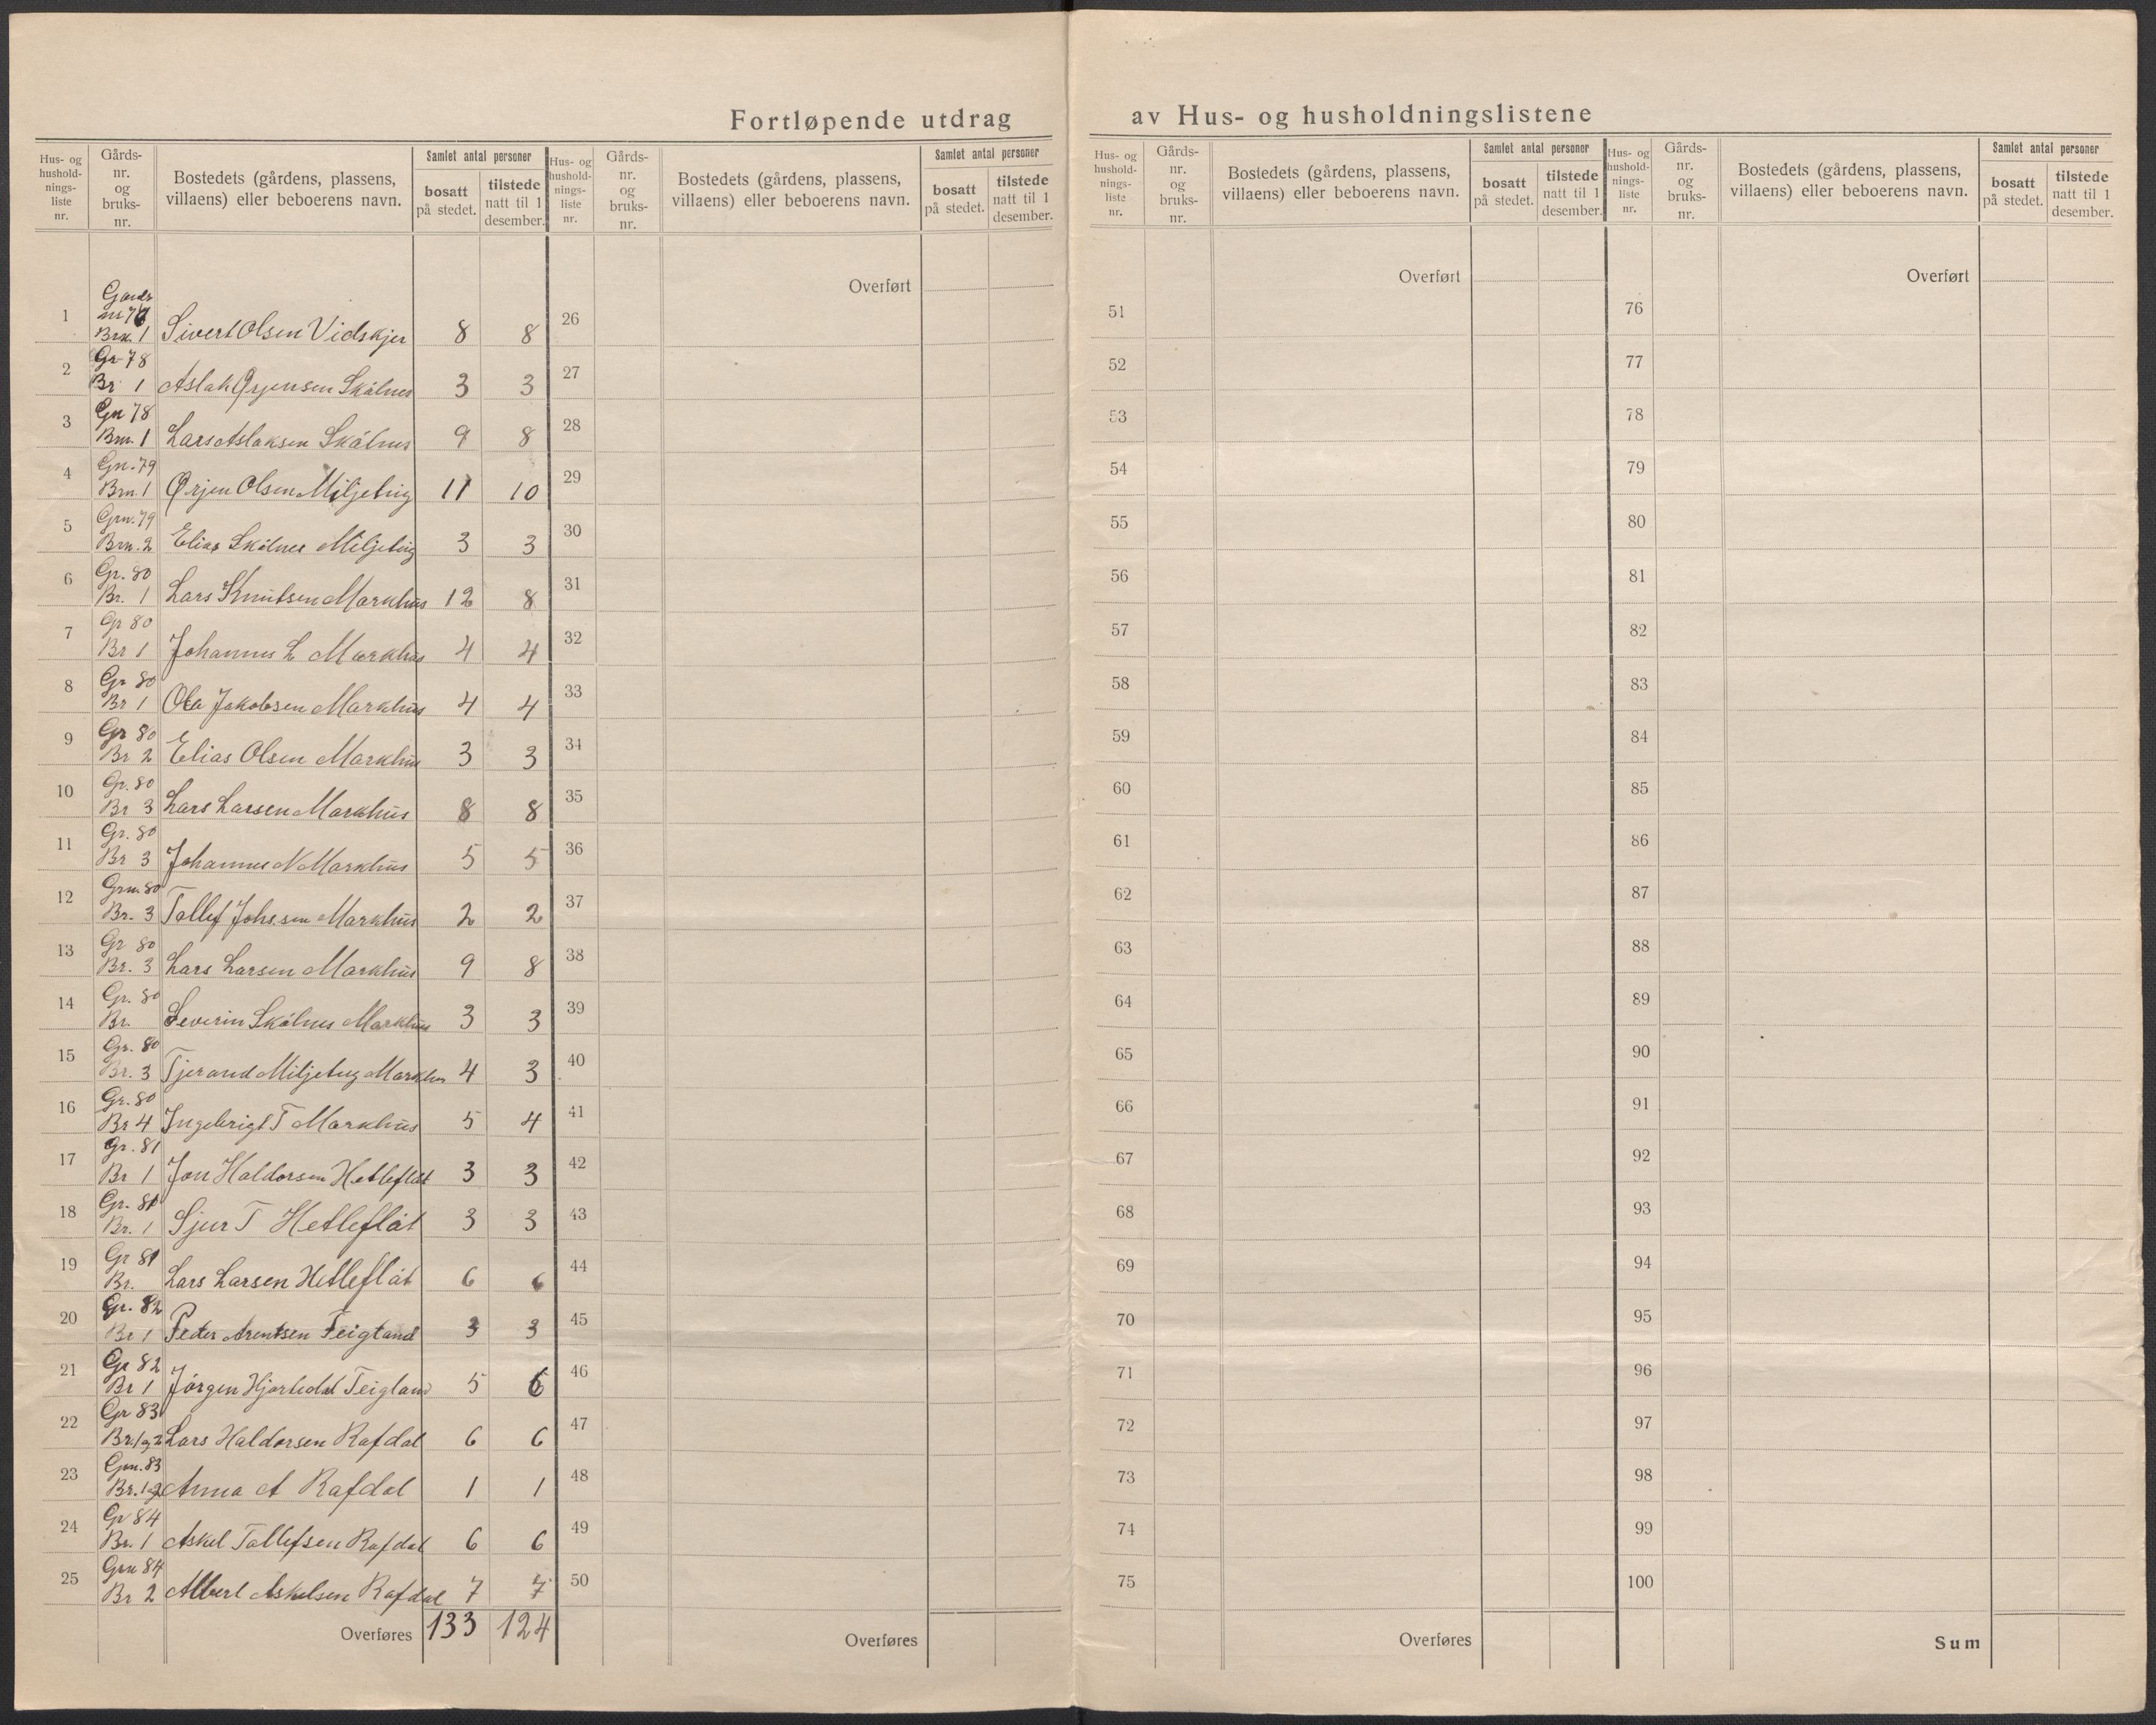 Fortløpende utdrag av Hus- og husholdningslistene
Hus- og hushold-nings-liste nr.
Gårds-nr. og bruks-nr.
Bostedets (gårdens, plassens, villaens) eller beboerens navn.
Samlet antal personer
bosatt på stedet.
tilstede natt til 1 desember.
Hus- og hushold-nings-liste nr.
Gårds-nr. og bruks-nr.
Bostedets (gårdens, plassens, villaens) eller beboerens navn.
Samlet antal personer
bosatt på stedet.
tilstede natt til 1 desember.
Hus- og hushold-nings-liste nr.
Gårds-nr. og bruks-nr.
Bostedets (gårdens, plassens, villaens) eller beboerens navn.
Samlet antal personer
bosatt på stedet.
tilstede natt til 1 desember.
Hus- og hushold-nings-liste nr.
Gårds-nr. og bruks-nr.
Bostedets (gårdens, plassens, villaens) eller beboerens navn.
Samlet antal personer
bosatt på stedet.
tilstede natt til 1 desember.
Gards
1 nr 77 Brn. 1 Sivert Olsen Vidskjer 8 8
2 Gr 78 Br 1 Aslak Ørjensen Skålnes 3 3
3 Gn 78 Brn. 1 Lars Aslaksen Skålnes 9 8
4 Gn. 79 Brn. 1 Ørjen Olsen Miljeteig 11 10
5 Grn. 79 Brn. 2 Elias Skålnes Miljeteig 3 3
6 Gr. 80 Br. 1 Lars Knutsen Markhus 12 8
7 Gr 80 Br 1 Johannes L Markhus 4 4
8 Gr 80 Br 1 Ola Jakobsen Markhus 4 4
9 Gr 80 Br 2 Elias Olsen Markhus 3 3
10 Gr. 80 Br 3 Lars Larsen Markhus 8 8
11 Gr. 80 Br 3 Johannes N Markhus 5 5
12 Grn. 80 Br. 3 Tollef Johssen Markhus 2 2
13 Gr 80 Br. 3 Lars Larsen Markhus 9 8
14 Gr. 80 Br. Severin Skålnes Markhus 3 3
15 Gr. 80 Br. 3 Tjerand Miljeteig Markhus 4 3
16 Gr. 80 Br 4 Ingebrigt T Markhus 5 4
17 Gr. 81 Br 1 Jon Haldorsen Hetleflåt 3 3
18 Gr. 81 Br. 1 Sjur T Hetleflåt 3 3
19 Gr 81 Br. Lars Larsen Hetleflåt 6 6
20 Gr. 82 Br 1 Peder Arentsen Teigland 3 3
21 Gr 82 Br 1 Jørgen Hjortedal Teigland 5 6
22 Gr 83 Br. 1 og 2 Lars Haldorsen Rafdal 6 6
23 Grn. 83 Br. 1 Anna A Rafdal 1 1
24 Gr 84 Br. 1 Askel Tollefsen Rafdal 6 6
25 Grn 84 Br 2 Albert Askelsen Rafdal 7 7
Overføres 133 124
Overført
26
27
28
29
30
31
32
33
34
35
36
37
38
39
40
41
42
43
44
45
46
47
48
49
50
Overføres
Overført
51
52
53
54
55
56
57
58
59
60
61
62
63
64
65
66
67
68
69
70
71
72
73
74
75
Overføres
Overført
76
77
78
79
80
81
82
83
84
85
86
87
88
89
90
91
92
93
94
95
96
97
98
99
100
Sum